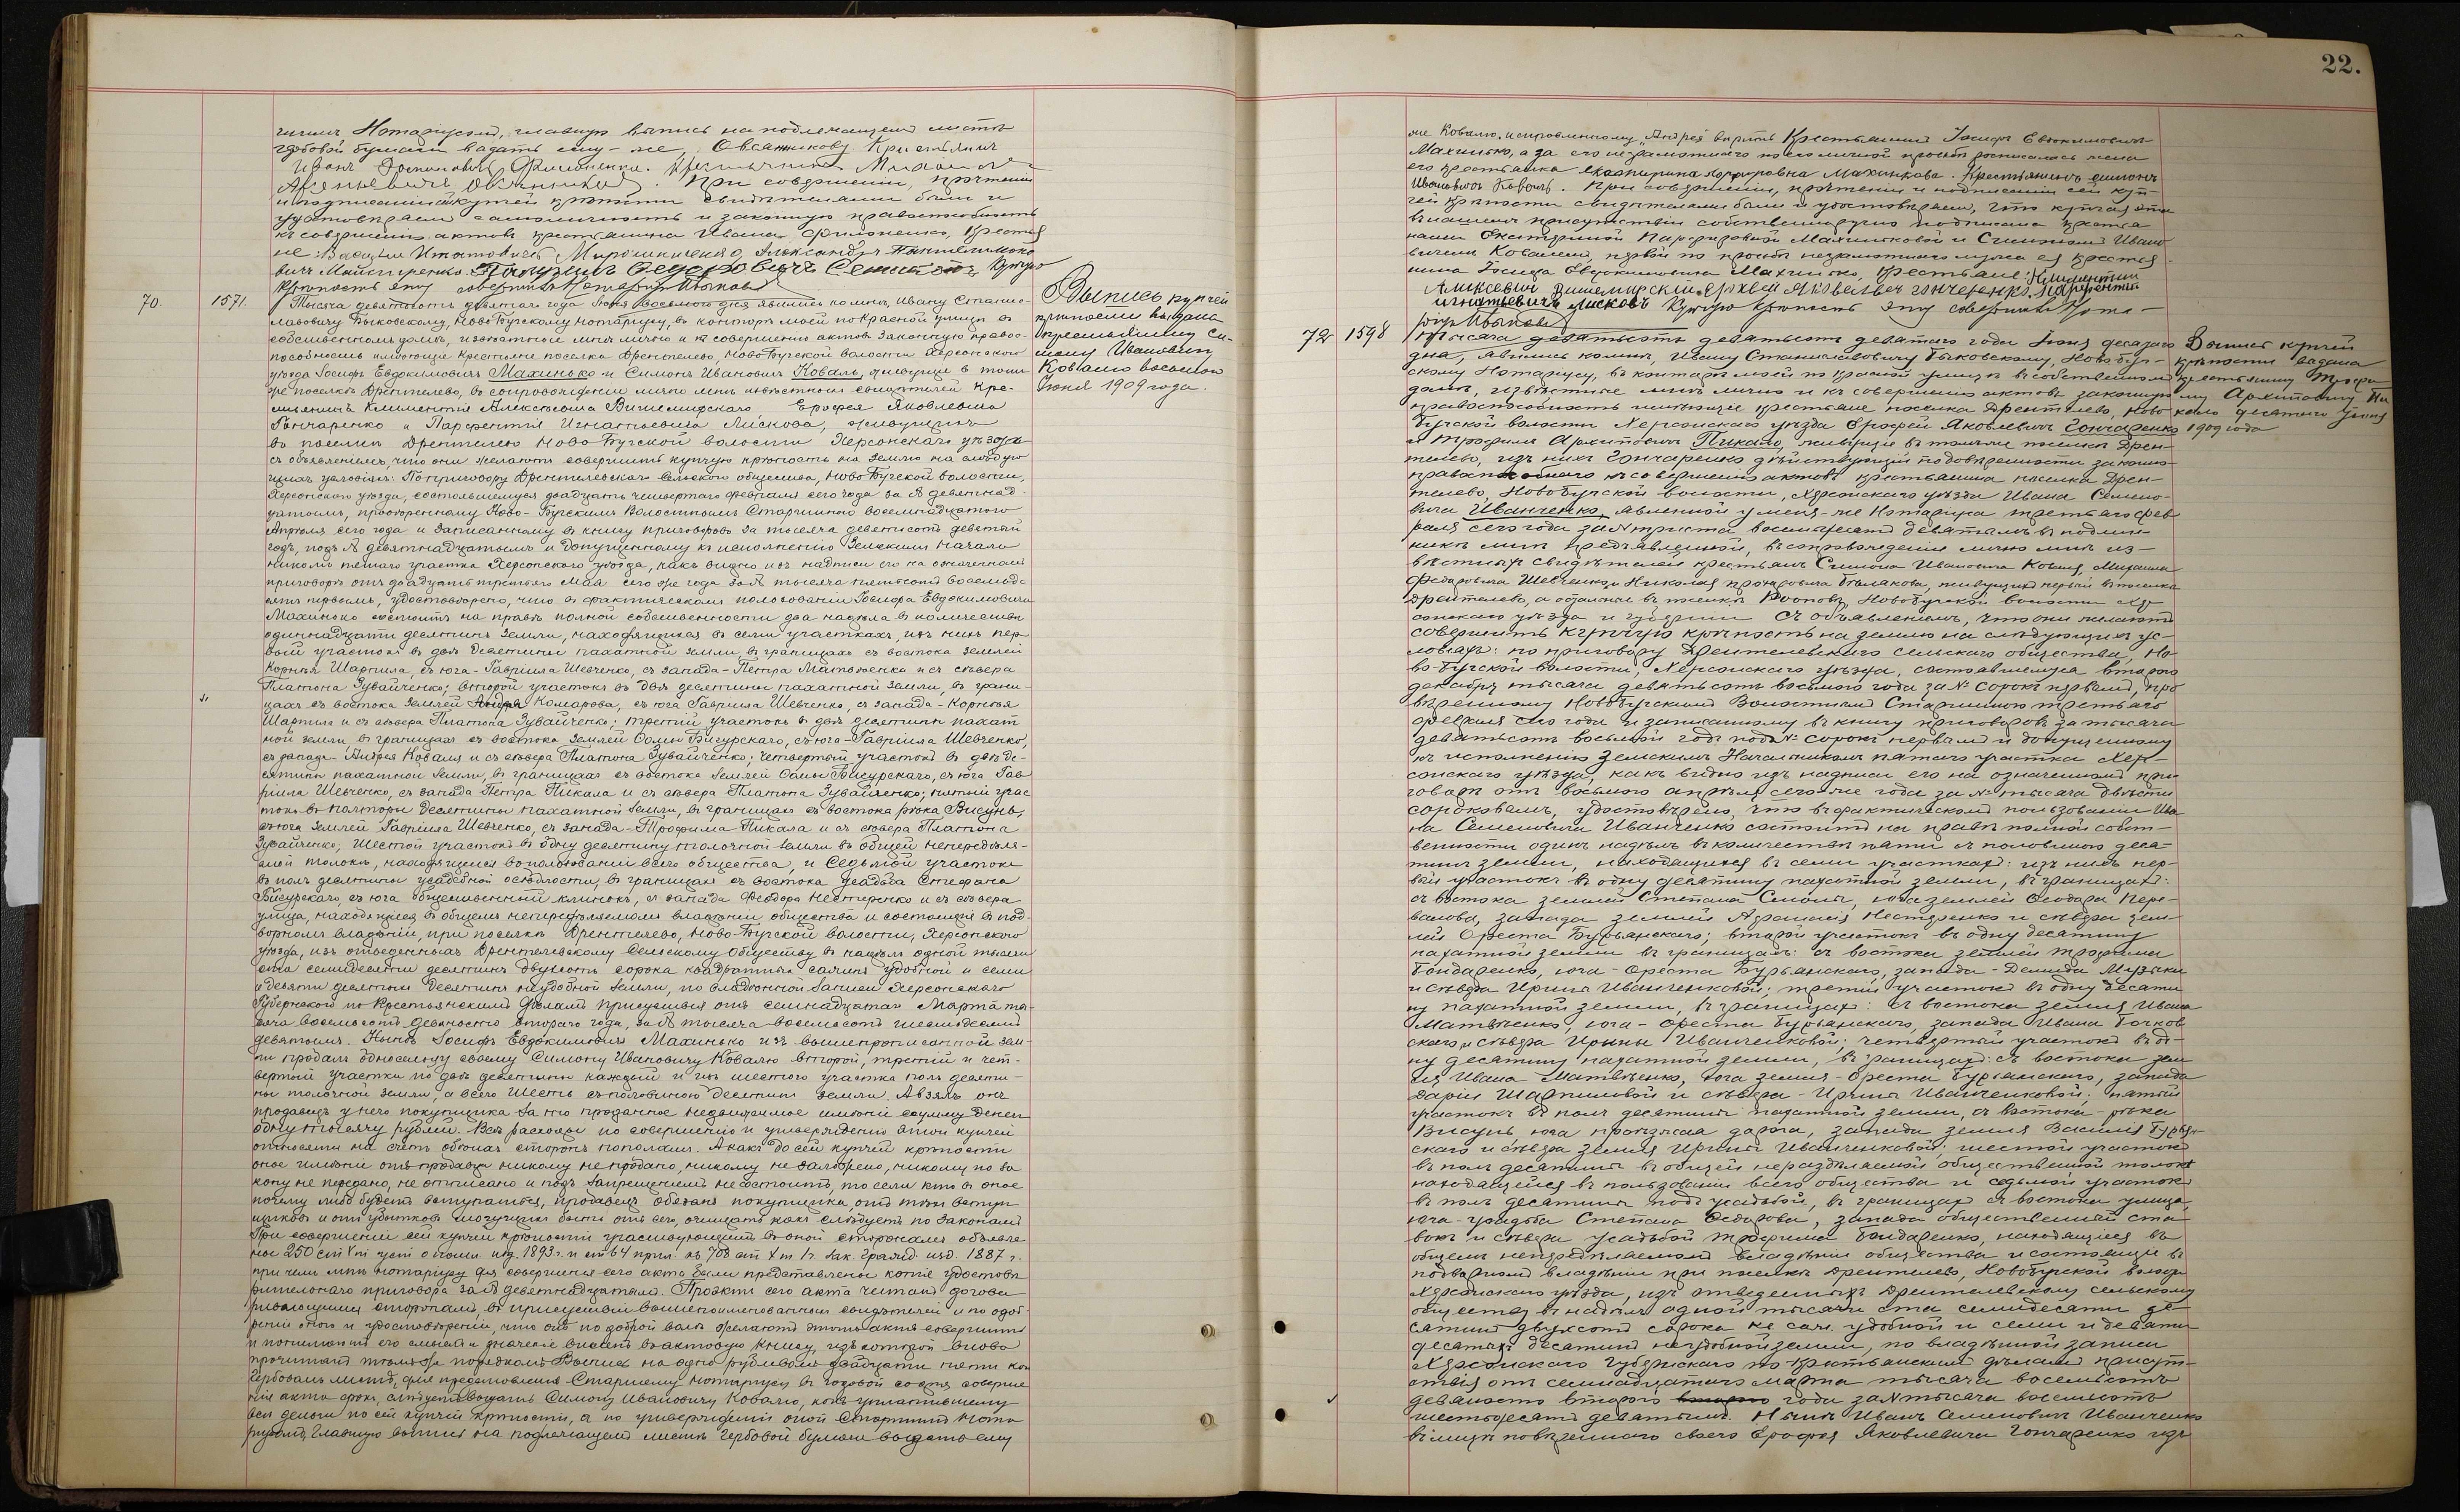 чиимъ Нотаріусомъ, главную выпись на подлежащемъ листѣ
гербовой бумаги выдать ему-же, Овсянникову. Крестьянинъ
Иванъ Филоненко. Крестьянинъ
Овсянниковъ. При совершеніи, прочтеніи
и подписаніи сей купчей крѣпости свидѣтелями были и
удостовѣряемъ самоличность и законную правоспособность
къ совершенію актовъ крестьянина Ивана Филоненко, крестья
не: Василій Игнатовичъ Мирошниченко, Александръ Пантелимоно
вичъ Федоровичъ Купчую
крѣпость эту совершилъ Нотаріусъ Быковскій
70. 1571. Тысяча девятьсотъ девятаго года Іюня Восьмого дня явились ко мнѣ, Ивану Станис-
лавовичу Быковскому, Ново-Бугскому Нотаріусу, въ контору мою по Красной улицѣ въ
собственномъ домѣ, извѣстные мнѣ лично и къ совершенію актовъ законную правос-
пособность имѣющіе крестьяне поселка Дрентелево, Ново-Бугской волости Херсонскаго
уѣзда Іосифъ Евдокимовичъ Махинько и Симонъ Ивановичъ Коваль, живущіе въ томъ
же поселкѣ Дрентелево, въ сопровожденіи лично мнѣ извѣстныхъ свидѣтелей кре-
стьянинъ Климентія Алексѣевича Вишемирскаго, Ерофея Яковлевича
Гончаренко и Парфентія Игнатьевича Лискова, живущихъ
въ поселкѣ Дрентелево Ново-Бугской волости Херсонскаго уѣзда
съ объявленіемъ, что они желаютъ совершить купчую крѣпость на землю на слѣдую
щихъ условіяхъ: По приговору Дрентелевскаго сельскаго общества, Ново-Бугской волости,
Херсонскаго уѣзда, состоявшемуся двадцать четвертаго февраля сего года за № девятнад
цатымъ, провѣренному Ново-Бугскимъ Волостнымъ Старшиною восемнадцатого
Апрѣля сего года и записанному въ книгу приговоровъ за тысяча девятьсотъ девятый
годъ, подъ № девятнадцатымъ и допущенному къ исполненію Земскимъ Началь
никомъ пятаго участка Херсонскаго уѣзда, какъ видно изъ надписи его на означенномъ
приговорѣ отъ двадцать третьяго Мая сего же года за № тысяча пятьсотъ восемьде
сятъ первымъ, удостовѣрено, что въ фактическомъ пользованіи Іосифа Евдокимовича
Махинько состоитъ на правѣ полной собственности два надѣла въ количествѣ
одиннадцати десятинъ земли, находящихся въ семи участкахъ, изъ нихъ пер
вый участокъ въ двѣ десятины пахатной земли, въ границахъ съ востока землей
Корнѣя Шарпила, съ юга - Гавріила Шевченко, съ запада - Петра Матвѣенко и съ сѣвера
Платона Зувайченко; второй участокъ въ двѣ десятины пахатной земли, въ грани-
цахъ съ востока землей Андрея Комарова, съ юга Гавріила Шевченко, съ запада - Корнѣя
Шарпила и съ сѣвера Платона Зувайченко; третій участокъ въ двѣ десятины пахат
ной земли, въ границахъ съ востока землей Бисурскаго, съ юга - Гавріила Шевченко,
съ запада - Андрея Коваля и съ сѣвера Платона Зувайченко; четвертый участокъ въ двѣ де-
сятины пахатной земли, въ границахъ съ востока землей Бисурскаго, съ юга Гав
ріила Шевченко, съ запада Петра Пикала и съ сѣвера Платона Зувайченко; пятый учас
токъ въ полторы десятины пахатной земли, въ границахъ съ востока рѣка Висунь,
съ юга землей Гавріила Шевченко, съ запада - Трофима Пикала и съ сѣвера Платона
Зувайченко, шестой участокъ въ одну десятину толочной земли въ общей непередѣля-
емой толокѣ, находящейся въ пользованіи всего общества, и седьмой участокъ
въ полъ десятины усадебной осѣдлости, въ границахъ съ востока усадьба Стефана
Бисурскаго, съ юга общественный клинокъ, съ запада Феодора Нестеренко и съ сѣвера
улица, находящіеся въ общемъ непередѣляемомъ владѣніи общества и состоящіе въ под-
ворномъ владѣніи, при поселкѣ Дрентелево, Ново-Бугской волости, Херсонскаго
уѣзда, изъ отведенныхъ Дрентелевскому сельскому обществу въ надѣлъ одной тысячи
ста семидесяти десятинъ двухсотъ сорока квадратныхъ саженъ удобной и семи
и девяти десятыхъ десятинъ неудобной земли, по владѣнной записи Херсонскаго
Губернскаго по крестьянскимъ дѣламъ присутствія отъ семнадцатаго Марта ты-
сяча восемьсотъ девяносто второго года, за № тысяча восемьсотъ шестьдесятъ
девятымъ. Нынѣ Іосифъ Евдокимовичъ Махинько изъ вышепрописанной зем-
ли продалъ односельцу своему Симону Ивановичу Ковалю второй, третій и чет-
вертый участки по двѣ десятины каждый и изъ шестого участка полъ десяти-
ны толочной земли, а всего шесть съ половиною десятинъ земли. А взялъ онъ
продавецъ у него покупщика за то проданное недвижимое имѣніе сумму денегъ
одну тысячу рублей. Всѣ расходы по совершенію и утвержденію этой купчей
относятся на счетъ обоихъ сторонъ пополамъ. А какъ до сей купчей крѣпости
оное имѣніе отъ продавца никому не продано, никому не заложено, никому по за
кону не передано, не отписано и подъ запрещеніемъ не состоитъ, то если кто въ оное
почему либо будетъ вступаться, продавецъ обязанъ покупщика, отъ тѣхъ вступ
щиковъ и отъ убытковъ могущихъ быть отъ сего, очищать какъ слѣдуетъ по законамъ
При совершеніи сей купчей крѣпости участвующимъ въ оной сторонамъ объявле
но: 250 ст. изд. 1893 г. и ст. 64 прил. къ 708 ст. X т. 1 ч. Зак. гражд. изд. 1887 г.
при чемъ мнѣ нотаріусу для совершенія сего акта были представлены копіе удостовѣ
рительнаго приговора за № девятнадцатымъ. Проэктъ сего акта читанъ догова
ривающимся сторонамъ, въ присутствіи вышепоименованныхъ свидѣтелей и по одоб-
реніи оного и удостовѣреніи, что они по доброй волѣ желаютъ этотъ актъ совершить
и понимаютъ его смыслъ и значеніе внесенъ въ актовую книгу, изъ которой вновь
прочитанъ тѣмъ же порядкомъ. Выпись на одно рублевомъ двадцати пяти коп
гербовомъ листѣ, для представленія Старшему Нотаріусу въ годовой со дня соверше
нія акта срокъ, слѣдуетъ выдать Симону Ивановичу Ковалю, какъ уплатившему
всѣ деньги по сей купчей крѣпости, а по утвержденіи оной Старшимъ Нота
ріусомъ, Главную выпись на подлежащемъ листѣ гербовой бумаги выдать ему
Выпись купчей
крѣпости выдана
крестьянину Си-
мону Ивановичу
Ковалю восьмого
Іюня 1909 года.
22.
же Ковалю. исправленному "Андрея" вѣрить. Крестьянинъ Іосифъ Евдокимовичъ
Махинько, а за его неграмотнаго по его личной просьбѣ росписалась жена
его крестьянка Екатерина Порфировна Махинькова. Крестьянинъ Симонъ
Ивановичъ Коваль. При совершеніи, прочтеніи и подписаніи сей куп-
чей крѣпости свидѣтелями были и удостовѣряемъ, что купчая эта
въ нашемъ присутствіи собственноручно подписана крестья
нами Екатериной Парфировной Махиньковой и Симономъ Ивано
вичемъ Ковалемъ, первой по просьбѣ неграмотнаго мужа ея крестья
нина Іосифа Евдокимовича Махинько, крестьяне: Климентій
Алексѣевич Вишемирскій. Ерофей Яковлевич Гончаренко. Парфентій
Игнатьевичъ Лисковъ. Купчую крѣпость эту совершилъ Нота-
ріусъ Быковскій
72 1598 Тысяча девятьсотъ девятаго года Іюня десятаго
дня, явились ко мнѣ, Ивану Станиславовичу Быковскому, Ново-Буг-
скому Нотаріусу, въ контору мою по Красной улицѣ въ собственномъ
домѣ, извѣстные мнѣ лично и къ совершенію актовъ законную
правоспособность имѣющіе крестьяне поселка Дрентелево, Ново
Бугской волости Херсонскаго уѣзда Ерофей Яковлевичъ Гончаренко
и Трофимъ Архиповичъ Пикало, живущіе въ томъ же поселкѣ Дрен-
телево, изъ нихъ Гончаренко дѣйствующій по довѣренности законно
правоспособнаго къ совершенію актовъ крестьянина поселка Дрен-
телево, Новобугской волости, Херсонскаго уѣзда Ивана Семено-
вича Иванченко, явленной у меня-же Нотаріуса третьяго фев
раля сего года за № триста восемьдесятъ девятымъ въ подлин-
никѣ мнѣ предъявленной, въ сопровожденіи лично мнѣ из-
вѣстныхъ свидѣтелей крестьянъ Симона Ивановича Коваля, Михаила
Федоровича Шевченко и Николая Бѣлякова, живущихъ первый въ поселкѣ
Дрентелево, а остальные въ поселкѣ Новобугской волости Хер
сонскаго уѣзда и губерніи съ объявленіемъ, что они желаютъ
совершить купчую крѣпость на землю на слѣдующихъ ус-
ловіяхъ: по приговору Дрентелевскаго сельскаго общества, Но-
во-Бугской волости, Херсонскаго уѣзда, состоявшемуся второго
декабря тысяча девятьсотъ восьмого года за № сорокъ первымъ, про
вѣренному Новобугскимъ Волостнымъ Старшиною третьяго
февраля сего года и записанному въ книгу приговоровъ за тысяча
девятьсотъ восьмой годъ подъ № сорокъ первымъ и допущенному
къ исполненію Земскимъ Начальникомъ пятаго участка Хер-
сонскаго уѣзда, какъ видно изъ надписи его на означенномъ при
говорѣ отъ восьмого апрѣля сего-же года за № тысяча двѣсти
сороковымъ, удостовѣрено, что въ фактическомъ пользованіи Ива
на Семеновича Иванченко состоитъ на правѣ полной собст-
венности одинъ надѣлъ въ количествѣ пяти съ половиною деся-
тинъ земли, находящихся въ семи участкахъ: изъ нихъ пер-
вый участокъ въ одну десятину пахатной земли, въ границахъ:
съ востока землей Степана юга землей Феодора Пере-
валова, запада землей Нестеренко и сѣвера зем-
лей Ореста Бурьянскаго; второй участокъ въ одну десятину
пахатной земли въ границахъ: съ востока землей Трофима
Бондаренко, юга - Ореста Бурьянскаго, запада - Демида Музыки
и сѣвера Ирины Иванченковой; третій участокъ въ одну десяти
ну пахатной земли, въ границахъ: съ востока земля Ивана
Матвѣенко, юга - Ореста Бурьянскаго, запада Ивана Бочков
скаго и сѣвера Ирины Иванченковой; четвертый участокъ въ од-
ну десятину пахатной земли, въ границахъ: съ востока зем
ля Ивана Матвѣенко, юга земля - Ореста Бурьянскаго, запада
Дарьи Шарпиловой и сѣвера - Ирины Иванченковой; пятый
участокъ въ полъ десятины пахатной земли, съ востока - рѣка
Висунь, юга проѣзжая дорога, запада земля Василія Бурьян-
скаго и сѣвера земля Ирины Иванченковой; шестой участокъ
въ полъ десятины въ общей нераздѣляемой общественной толокѣ
находящейся въ пользованіи всего общества и седьмой участокъ
въ полъ десятины подъ усадьбой, въ границахъ съ востока улица,
юга - усадьба Степана Федорова, запада общественный ста
вокъ и сѣвера усадьбой Трофима Бондаренко, находящіеся въ
общемъ непередѣляемомъ владѣніи общества и состоящіе въ
подворномъ владѣніи при поселкѣ Дрентелево, Новобугской волости
Херсонскаго уѣзда, изъ отведенныхъ Дрентелевскому сельскому
обществу въ надѣлъ одной тысячи ста семидесяти де
сятинъ двухсотъ сорока кв саж. удобной и семи и девяти
десятыхъ десятинъ неудобной земли, по владѣнной записи
Херсонскаго Губернскаго по крестьянскимъ дѣламъ присут-
ствія отъ семнадцатаго марта тысяча восемьсотъ
девяносто второго года за № тысяча восемьсотъ
шестьдесятъ девятымъ. Нынѣ Иванъ Семеновичъ Иванченко
въ лицѣ повѣреннаго своего Ерофея Яковлевича Гончаренко изъ
Выпись купчей
крѣпости выдана
крестьянину Трофи
му Архиповичу Пи
калу десятого Іюня
1909 года